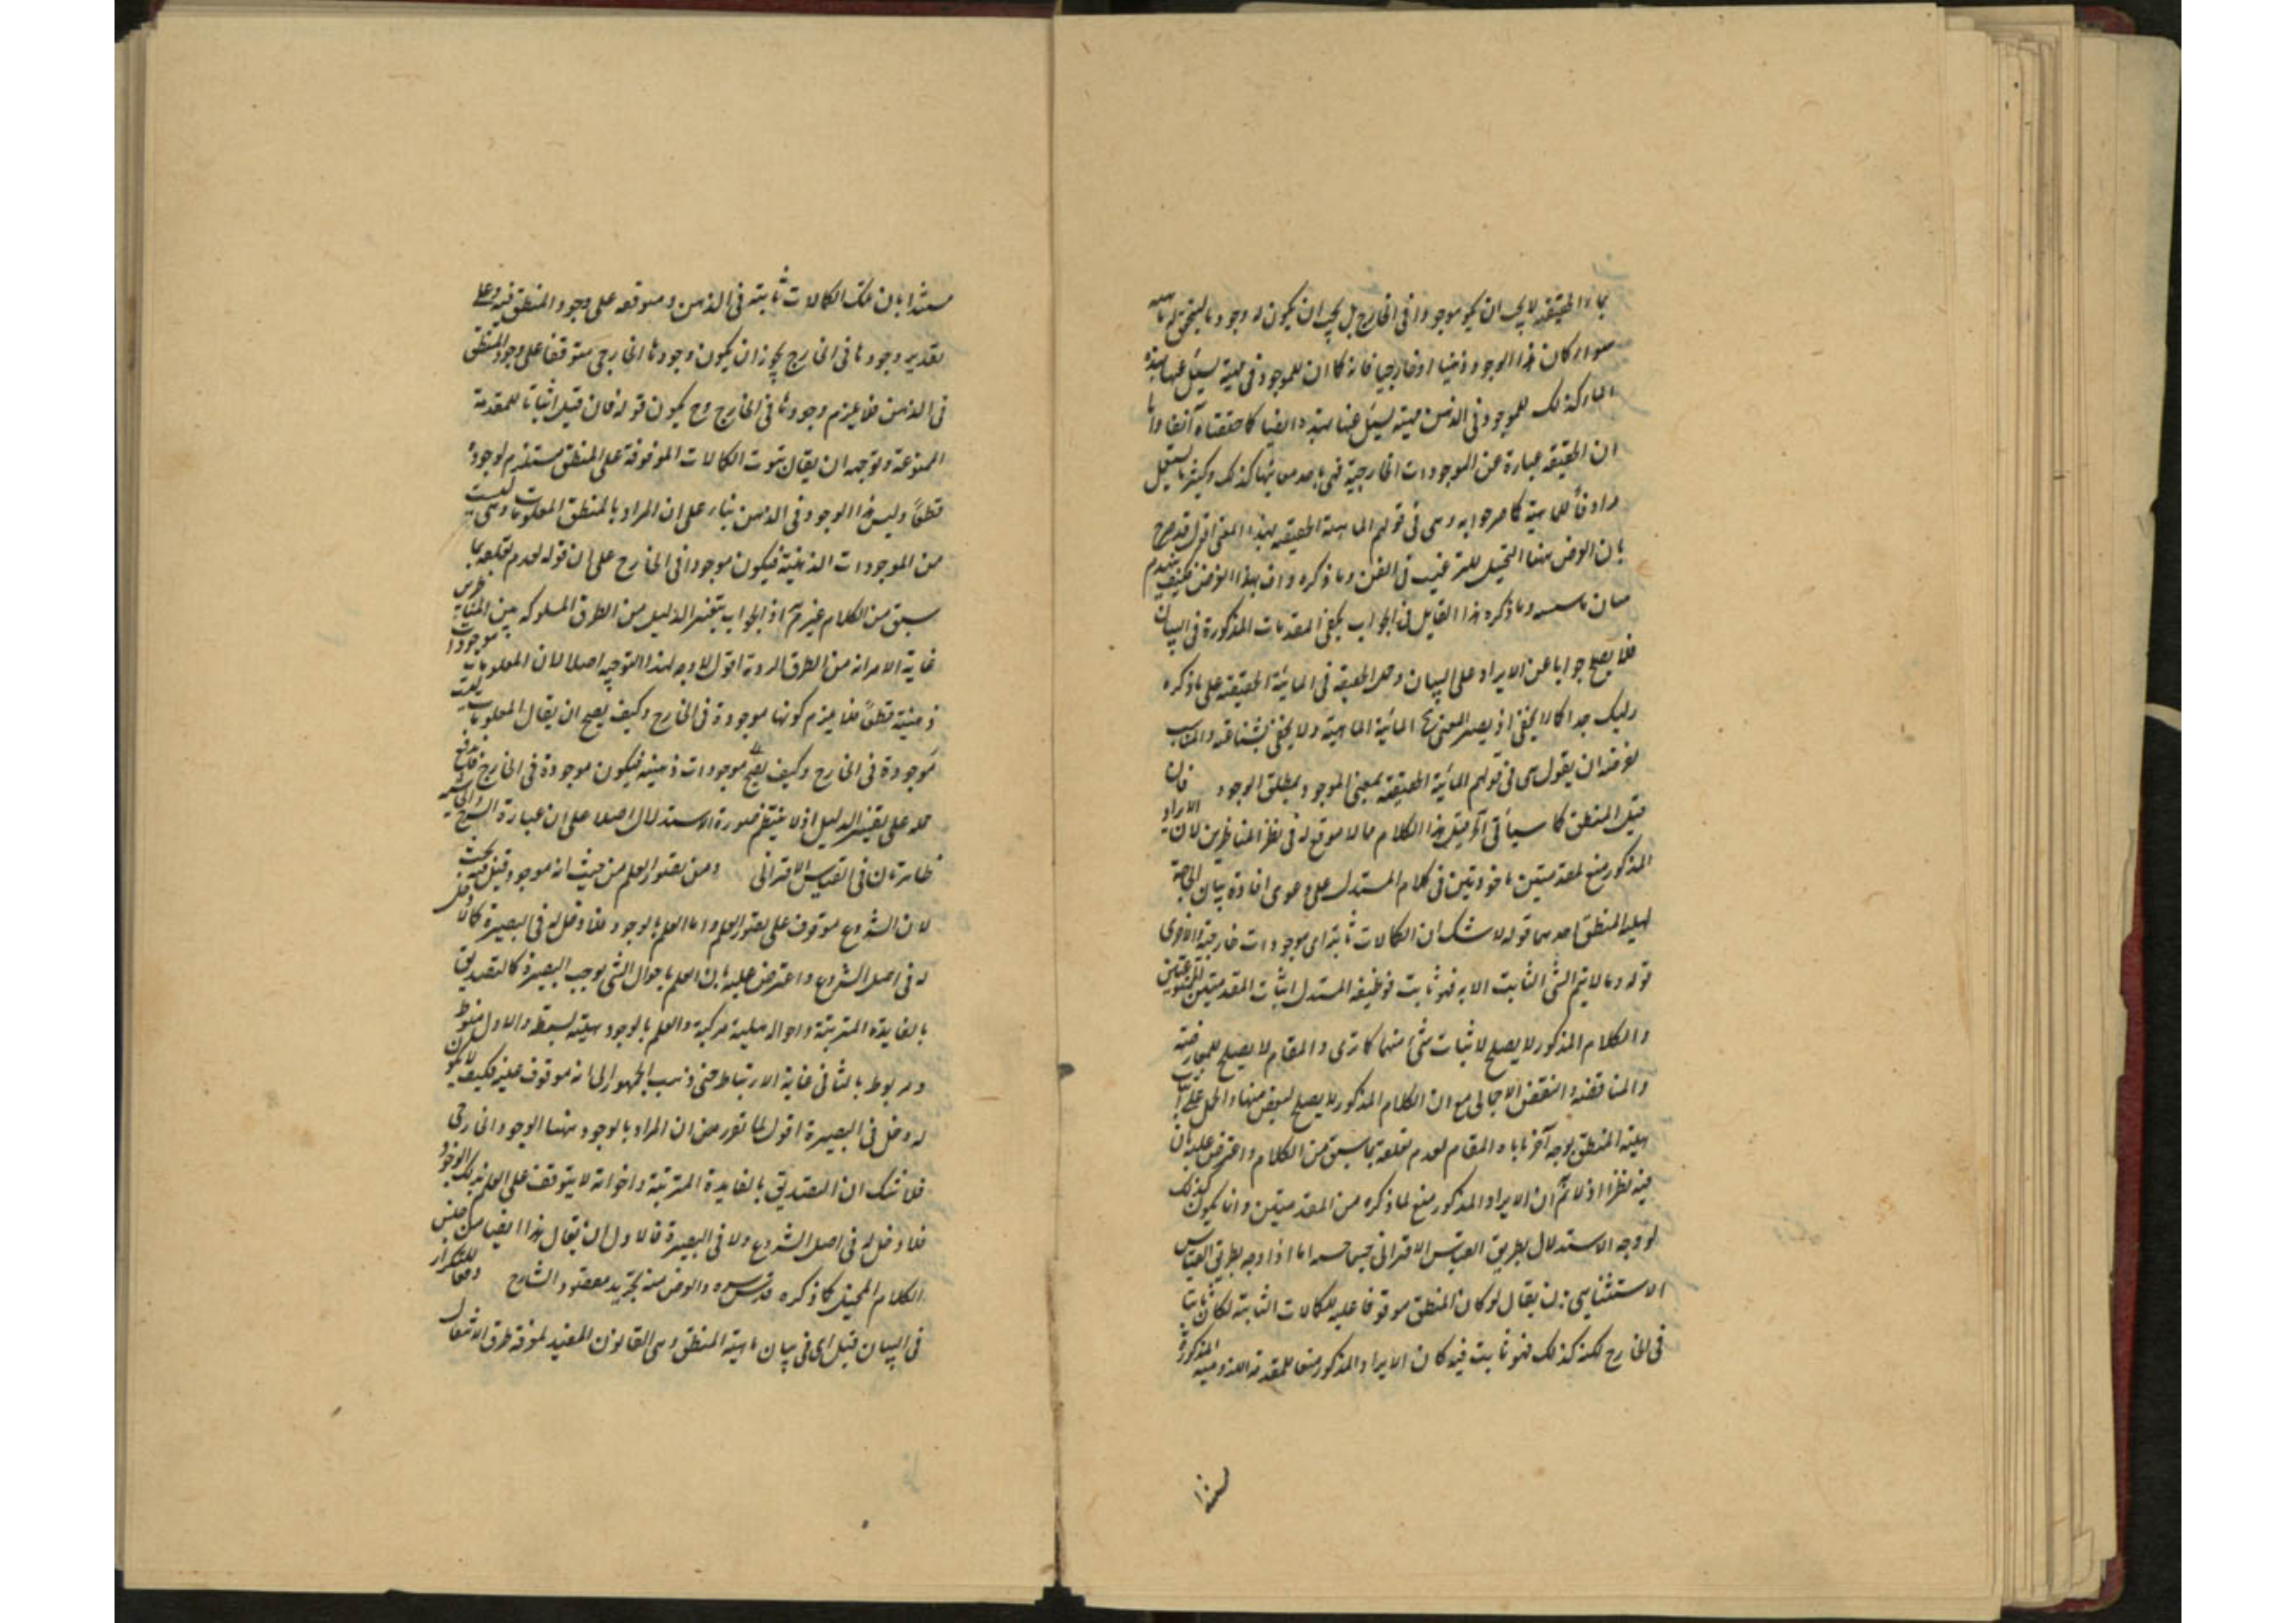 الحقيقة لا يجب ان يكون موجودا فى الخارج بل يجب ان يكون له وجود
سواء كان هذا الوجود ذهنيا او خارجيا فانه كما ان للموجود فى
كذلك للموجود فى الذهن مهية يسئل عنها بهذه ايضا كما حققناه آنفا واما
ان الحقيقة عبارة عن الموجودات الخارجية فهى احد معانيها كذلك وكثيرا ما يستعمل
مرادفاً للماهية كما صرحوا به وهى فى قولهم الماهية الحقيقية بهذا المعنى اقول قد صرح
بان الغرض ههنا التخييل للترغيب فى الفن وما ذكره واف بهذا الغرض فكيف ينهدم
وما ذكره هذا القايل فى الجواب يكفى المقدمات المذكورة فى البيان
فلا يصلح جوابا عن الايراد على البيان وحمل الحقيقة فى المائية الحقيقية على ما ذكره
ركيك جدا كما لا يخفى اذ يصير المعنى ح المائية الماهية ولا يخفى شناعته والمناسب
لغرضه ان يقول هى فى قولهم المائية الحقيقية بمعنى الموجود بمطلق الوجود فان
قيل المنطق كما سيأتى آه قيل هذا الكلام مما لا موقع له فى نظر المناظرين لان الايراد
المذكور منع لمقدمتين ماخوذتين فى كلام المستدل على دعوى افادة بيان الحاجة
لهلية المنطق احدهما قوله لا شك ان الكمالات ثابتة اى موجودات خارجية والاخرى
قوله وما لا يتم الشئ الثابت الا به فهو ثابت فوظيفة المستدل اثبات المقدمتين الممنوعتين
والكلام المذكور لا يصلح لاثبات شئ منهما كما ترى والمقام لا يصلح للمعارضة
والمناقضة والنقض الاجمالى مع ان الكلام المذكور لا يصلح لبعض منها والحمل على اثبات
هلية المنطق بوجه آخر ياباه المقام لعدم تعلقه بما سبق من الكلام واعترض عليه بان
فيه نظرا اذ لا نم ان الايراد المذكور منع لما ذكره من المقدمتين وانما يكون كذلك
لو وجه الاستدلال بطريق القياس الاقترانى اما اذا وجه بطريق القياس
الاستثنائى بان يقال لو كان المنطق موقوفا عليه للكمالات الثابتة لكان ثابتا
فى الخارج لكنه كذلك فهو ثابت فيه كان الايراد المذكور منعا للمقدمة المذكورة
مستندا بان تلك الكمالات ثابتة فى الذهن ومتوقفة على وجود المنطق فيه وعلى
تقدير وجودها فى الخارج يجوز ان يكون وجودها الخارجى متوقفا على وجود المنطق
فى الذهن فلا يلزم وجودها فى الخارج وح يكون قوله فان قيل اثباتا للمقدمة
الممنوعة وتوجيهه ان يقال ثبوت الكمالات الموقوفة على المنطق مستلزم لوجوده
قطعاً وليس هذا الوجود فى الذهن بناء على ان المراد بالمنطق المعلومات وهى ليست
من الموجودات الذهنية فيكون موجودا فى الخارج على ان قوله لعدم تعلقه بما
سبق من الكلام غير مم اذ الجواب بتغيير الدليل من الطرق المسلوكة بين
غاية الامر انه من الطرق اقول لا وجه لهذا التوجيه اصلا لان المعلومات موجودات
ذهنية قطعاً فلا يلزم كونها موجودة فى الخارج وكيف يصح ان يقال المعلومات ليست
موجودة فى الخارج وكيف يصح موجودات ذهنية فيكون موجودة فى الخارج
حمله على تغيير الدليل اذ لا ينتظم صورة الاستدلال اصلا على ان عبارة الشيخ
ظاهرتان فى القياس الاقترانى ومن تصور العلم من حيث انه موجود قيل فيه بحث
لان الشروع موقوف على تصور العلم واما العلم بالوجود فلا دخل له فى البصيرة كما لا دخل
له فى اصل الشروع واعترض عليه بان العلم باحوال الشئ يوجب البصيرة كالتصديق
بالفايدة المترتبة واحواله هلية مركبة والعلم بالوجود هلية بسيطة والاول منوط
ومربوط بالثانى غاية الارتباط حتى ذهب الجمهور الى انه موقوف عليه فكيف لا يكون
له دخل فى البصيرة اقول لما تقرر من ان المراد بالوجود ههنا الوجود الخارجى
فلا شك ان التصديق بالفايدة المترتبة واخواته لا يتوقف على العلم بذلك الوجود
فلا دخل له فى اصل الشروع ولا فى البصيرة فالاول ان يقال هذا ايضا من جنس
الكلام المخيل كما ذكره قدس سره والغرض منه تجريد مقصود الشارح دفعا للتكرار
فى البيان قيل اى فى بيان ماهية المنطق وهى القانون المفيد لمعرفة طرق الانتقال